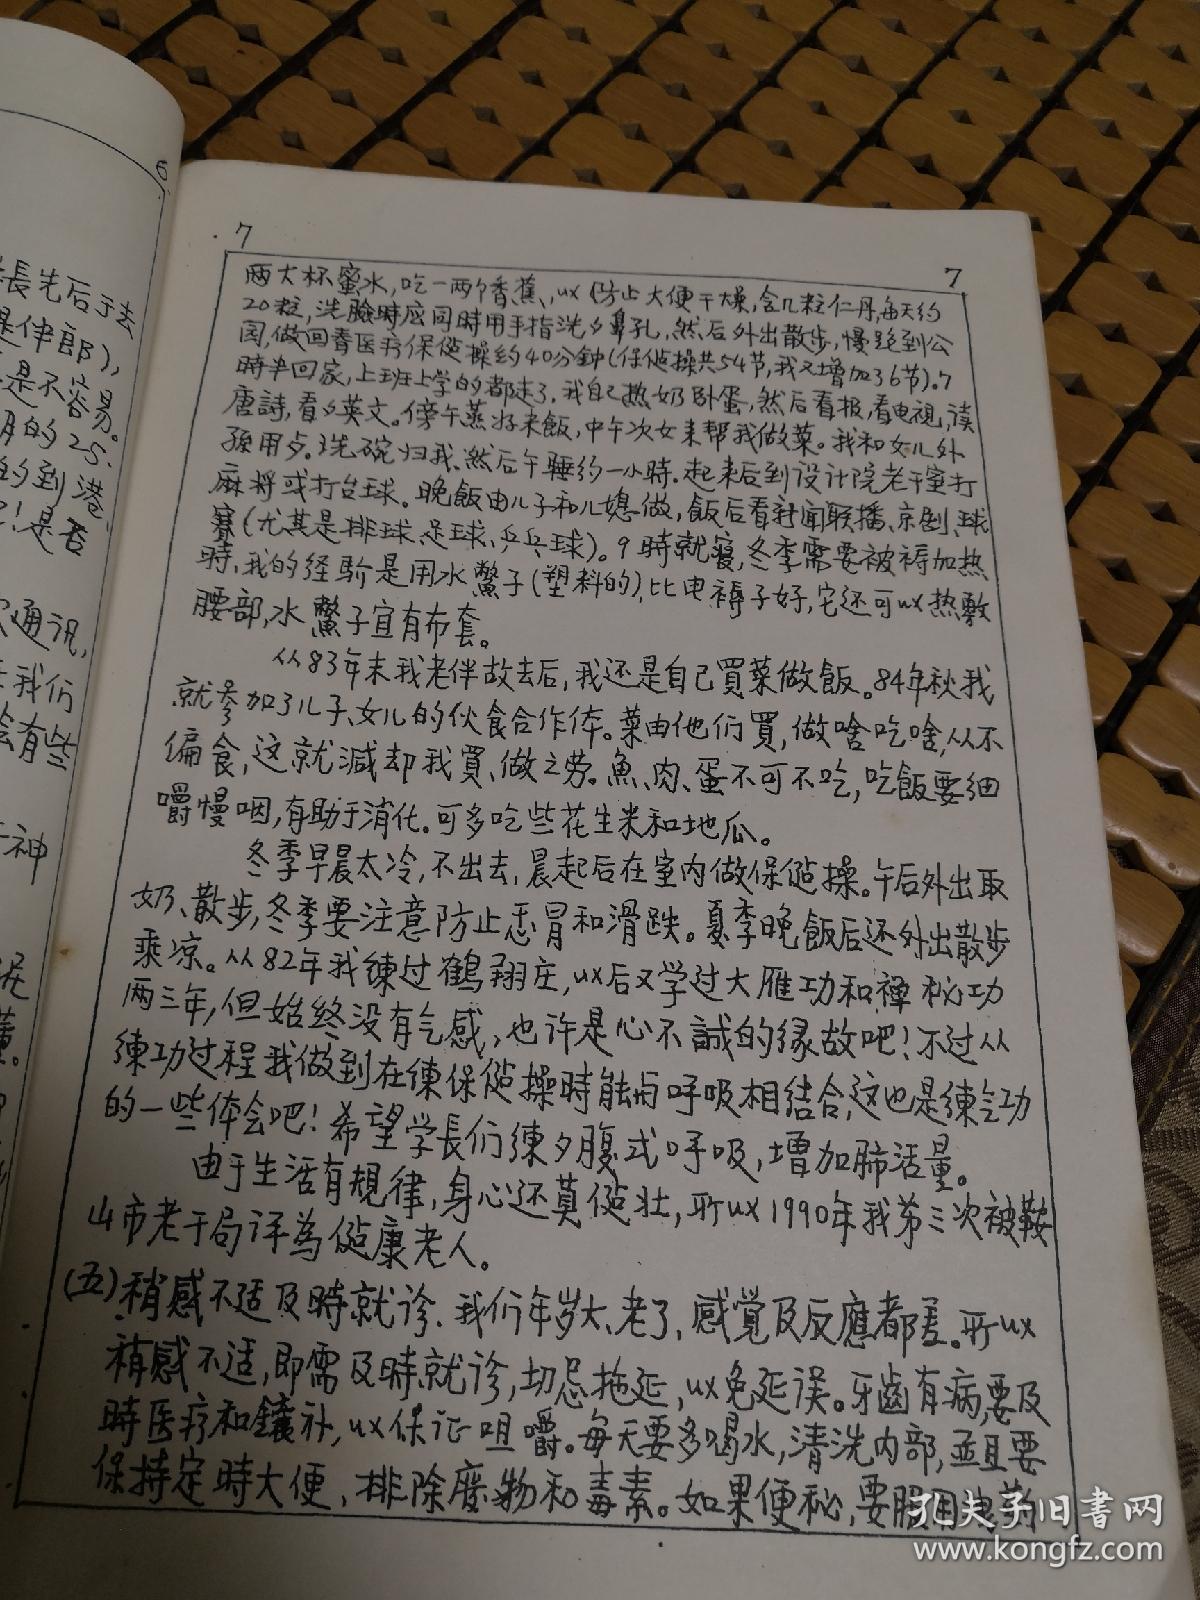 長先后于去
是伴郎),
是不容易。
月的25.
的到港,
是否
通讯,
我们
会有些
神
6
7
7
两大杯蜜水,吃一两个香蕉,以防止大便干燥,含几粒仁丹,每天约
20粒,洗臉時应同時用手指洗夕鼻孔,然后外出散步,慢跑到公
园,做回春医疗保健操约40分鐘(保健操共54节,我又增加36节)。7
時半回家,上班上学的都走了,我自己热奶卧蛋,然后看报,看电視,读
唐詩,看夕英文。傍午蒸好米飯,中午次女来帮我做菜。我和女儿外
孫用歺。洗碗归我、然后午睡约一小時。起来后到设计院老干室打
麻将或打台球。晚飯由儿子和儿媳做,飯后看新闻联播、京剧、球
赛(尤其是排球、足球、乒乓球)。9時就寝,冬季需要被褥加热
時,我的经验是用水鱉子(塑料的),比电褥子好,它还可以热敷
腰部,水鱉子宜有布套。
从83年末我老伴故去后,我还是自己買菜做飯。84年秋我
就参加了儿子、女儿的伙食合作体。菜由他们買,做啥吃啥,从不
偏食,这就減却我買、做之劳。魚、肉、蛋不可不吃,吃飯要细
嚼慢咽,有助于消化。可多吃些花生米和地瓜。
冬季早晨太冷,不出去,晨起后在室内做保健操。午后外出取
奶、散步,冬季要注意防止感冒和滑跌。夏季晚飯后还外出散步
乘凉。从82年我練过鶴翔庄,以后又学过大雁功和禅秘功
两三年,但始终没有气感,也许是心不誠的缘故吧!不过从
練功过程我做到在練保健操時能与呼吸相结合,这也是練气功
的一些体会吧!希望学長们練夕腹式呼吸,增加肺活量。
由于生活有規律,身心还算健壮,所以1990年我第三次被鞍
山市老干局评為健康老人。
(五)稍感不适及時就诊.我们年岁大、老了,感覚及反應都差。所以
稍感不适,即需及時就诊,切忌拖延,以免延误。牙齒有病,要及
時医疗和鑲补,以保证咀嚼。每天要多喝水,清洗内部,並且要
保持定時大便,排除废物和毒素。如果便秘,要服用
孔夫子旧书网
www.kongfz.com